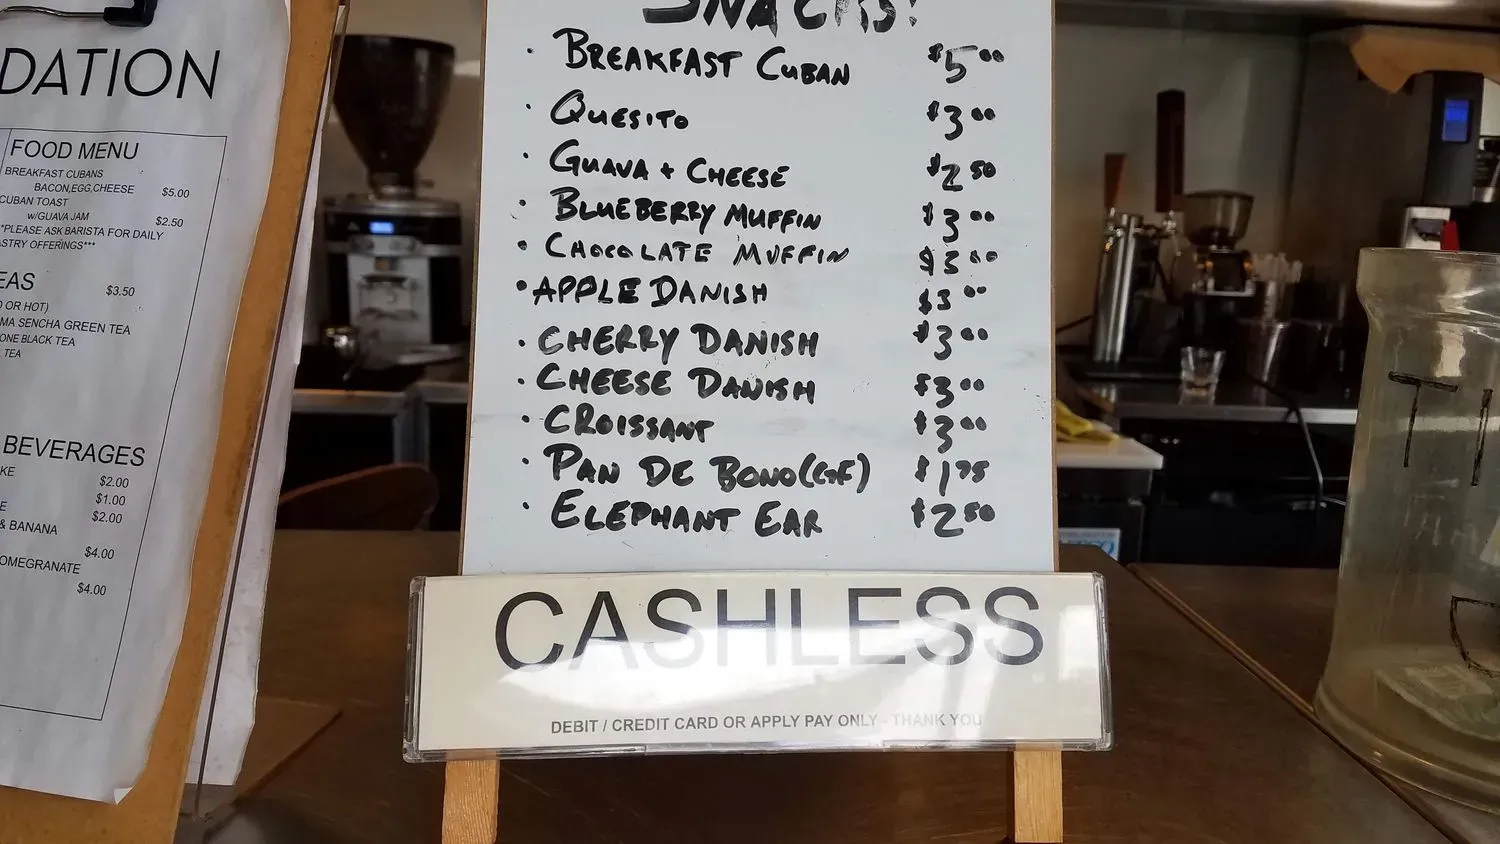 DATION
FOOD MENU
BREAKFAST CUBANS
BACON,EGG,CHEESE $5.00
CUBAN TOAST
w/GUAVA JAM $2.50
*PLEASE ASK BARISTA FOR DAILY
ASTRY OFFERINGS***
EAS $3.50
OR HOT)
MA SENCHA GREEN TEA
ONE BLACK TEA
TEA
BEVERAGES
KE $2.00
$1.00
E $2.00
& BANANA
$4.00
OMEGRANATE
$4.00
SNACKS!
• BREAKFAST CUBAN $5.00
• QUESITO $3.00
• GUAVA + CHEESE $2.50
• BLUEBERRY MUFFIN $3.00
• CHOCOLATE MUFFIN $3.00
• APPLE DANISH $3.00
• CHERRY DANISH $3.00
• CHEESE DANISH $3.00
• CROISSANT $3.00
• PAN DE BONO(GF) $1.75
• ELEPHANT EAR $2.50
CASHLESS
DEBIT / CREDIT CARD OR APPLY PAY ONLY - THANK YOU
TI